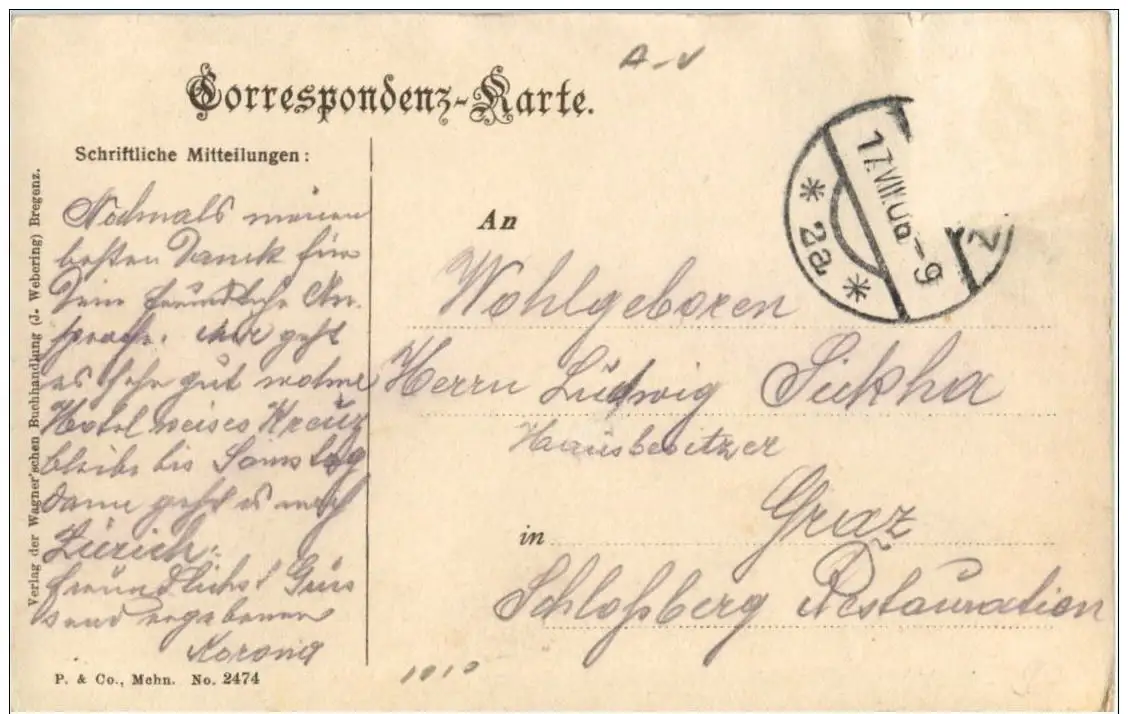 A-V
Correspondenz-Karte.
Schriftliche Mitteilungen:
Nochmals meinen
besten Dank für
Deine freundliche An-
sprache. Mir geht
es sehr gut wohne
Hotel weises Kreuz
bleibe bis Samstag
dann geht es nach
Zürich.
freundlichst Grüs
send ergebenen
An
Wohlgeboren
Herrn Ludwig
Hausbesitzer
in Graz
Schloßberg Restauration
17.VIII.06-9
* 2a *
Verlag der Wagner'schen Buchhandlung (J. Webering) Bregenz.
P. & Co., Mchn. No. 2474
1010